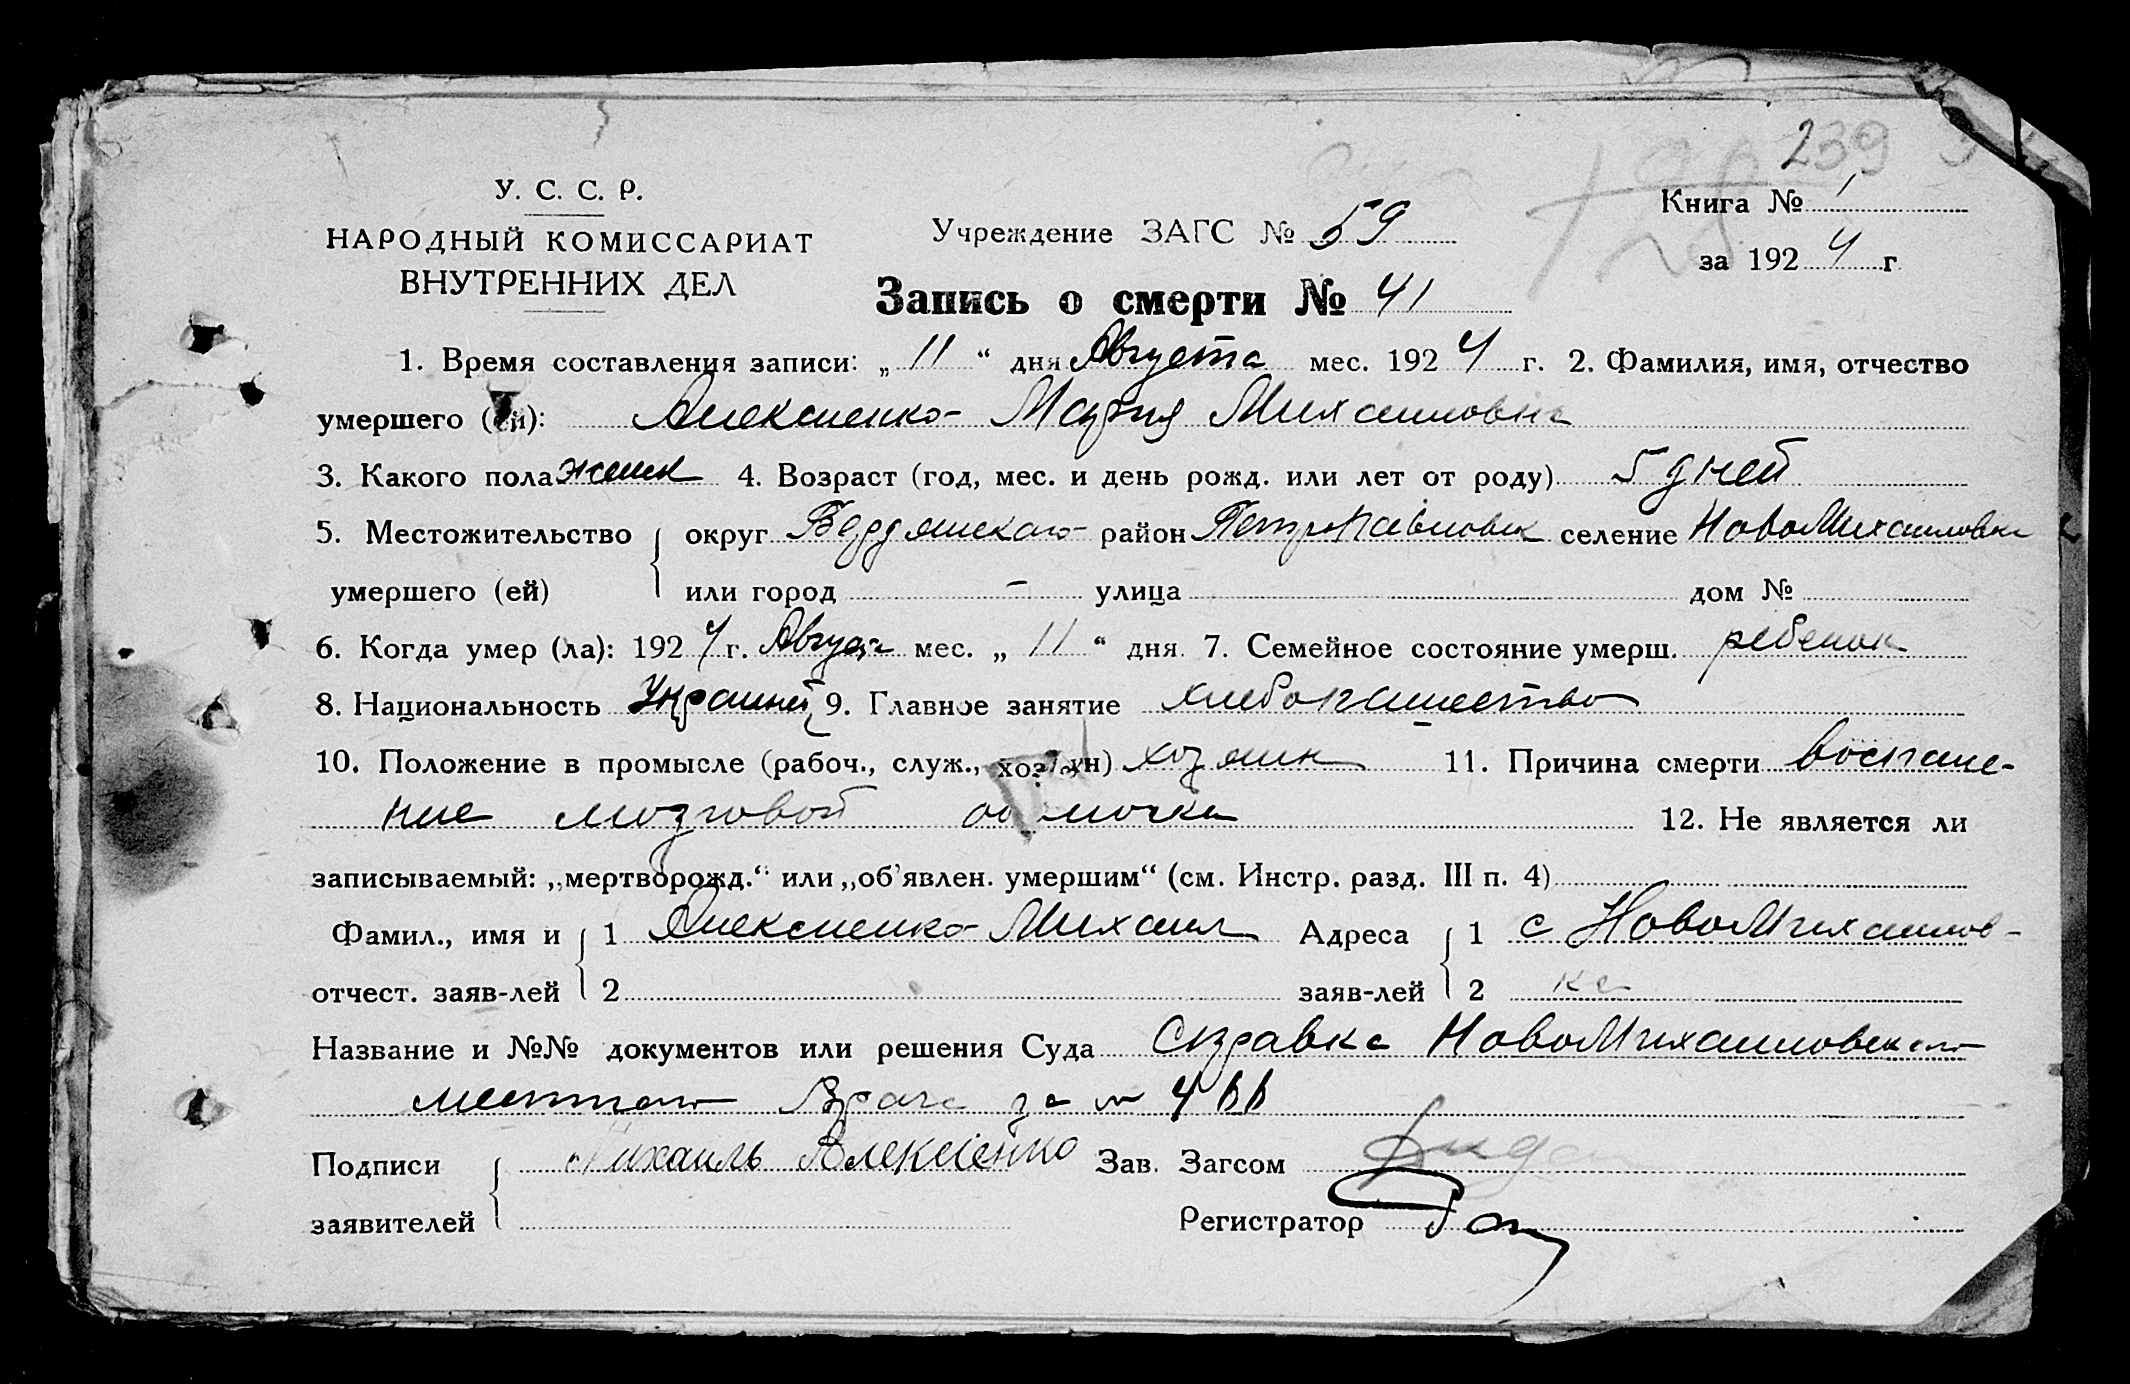 239
У. С. С. Р.
НАРОДНЫЙ КОМИССАРИАТ
ВНУТРЕННИХ ДЕЛ
Учреждение ЗАГС № 59
Книга № 1
за 1924 г.
Запись о смерти № 41
1. Время составления записи: „11“ дня Августа мес. 1924 г. 2. Фамилия, имя, отчество
умершего (ей): Алексиенко Мария Михаиловна
3. Какого пола женск 4. Возраст (год, мес. и день рожд. или лет от роду) 5 дней
5. Местожительство округ Бердянского район Петропавловск селение НовоМихаиловка
умершего (ей) или город – улица дом №
6. Когда умер (ла): 1924 г. Август мес. „11“ дня. 7. Семейное состояние умерш. ребенок
8. Национальность Украинец 9. Главное занятие хлебопашество
10. Положение в промысле (рабоч., служ., хозяин) хозяин 11. Причина смерти воспале-
ние мозговой оболочки 12. Не является ли
записываемый: „мертворожд.“ или „об'явлен. умершим“ (см. Инстр. разд. III п. 4)
Фамил., имя и 1 Алексиенко Михаил Адреса 1 с НовоМихаилов-
отчест. заяв-лей 2 заяв-лей 2 ка
Название и №№ документов или решения Суда Справка НовоМихаиловского
врача за №
Подписи Михаиль Алексіенко Зав. Загсом
заявителей Регистратор